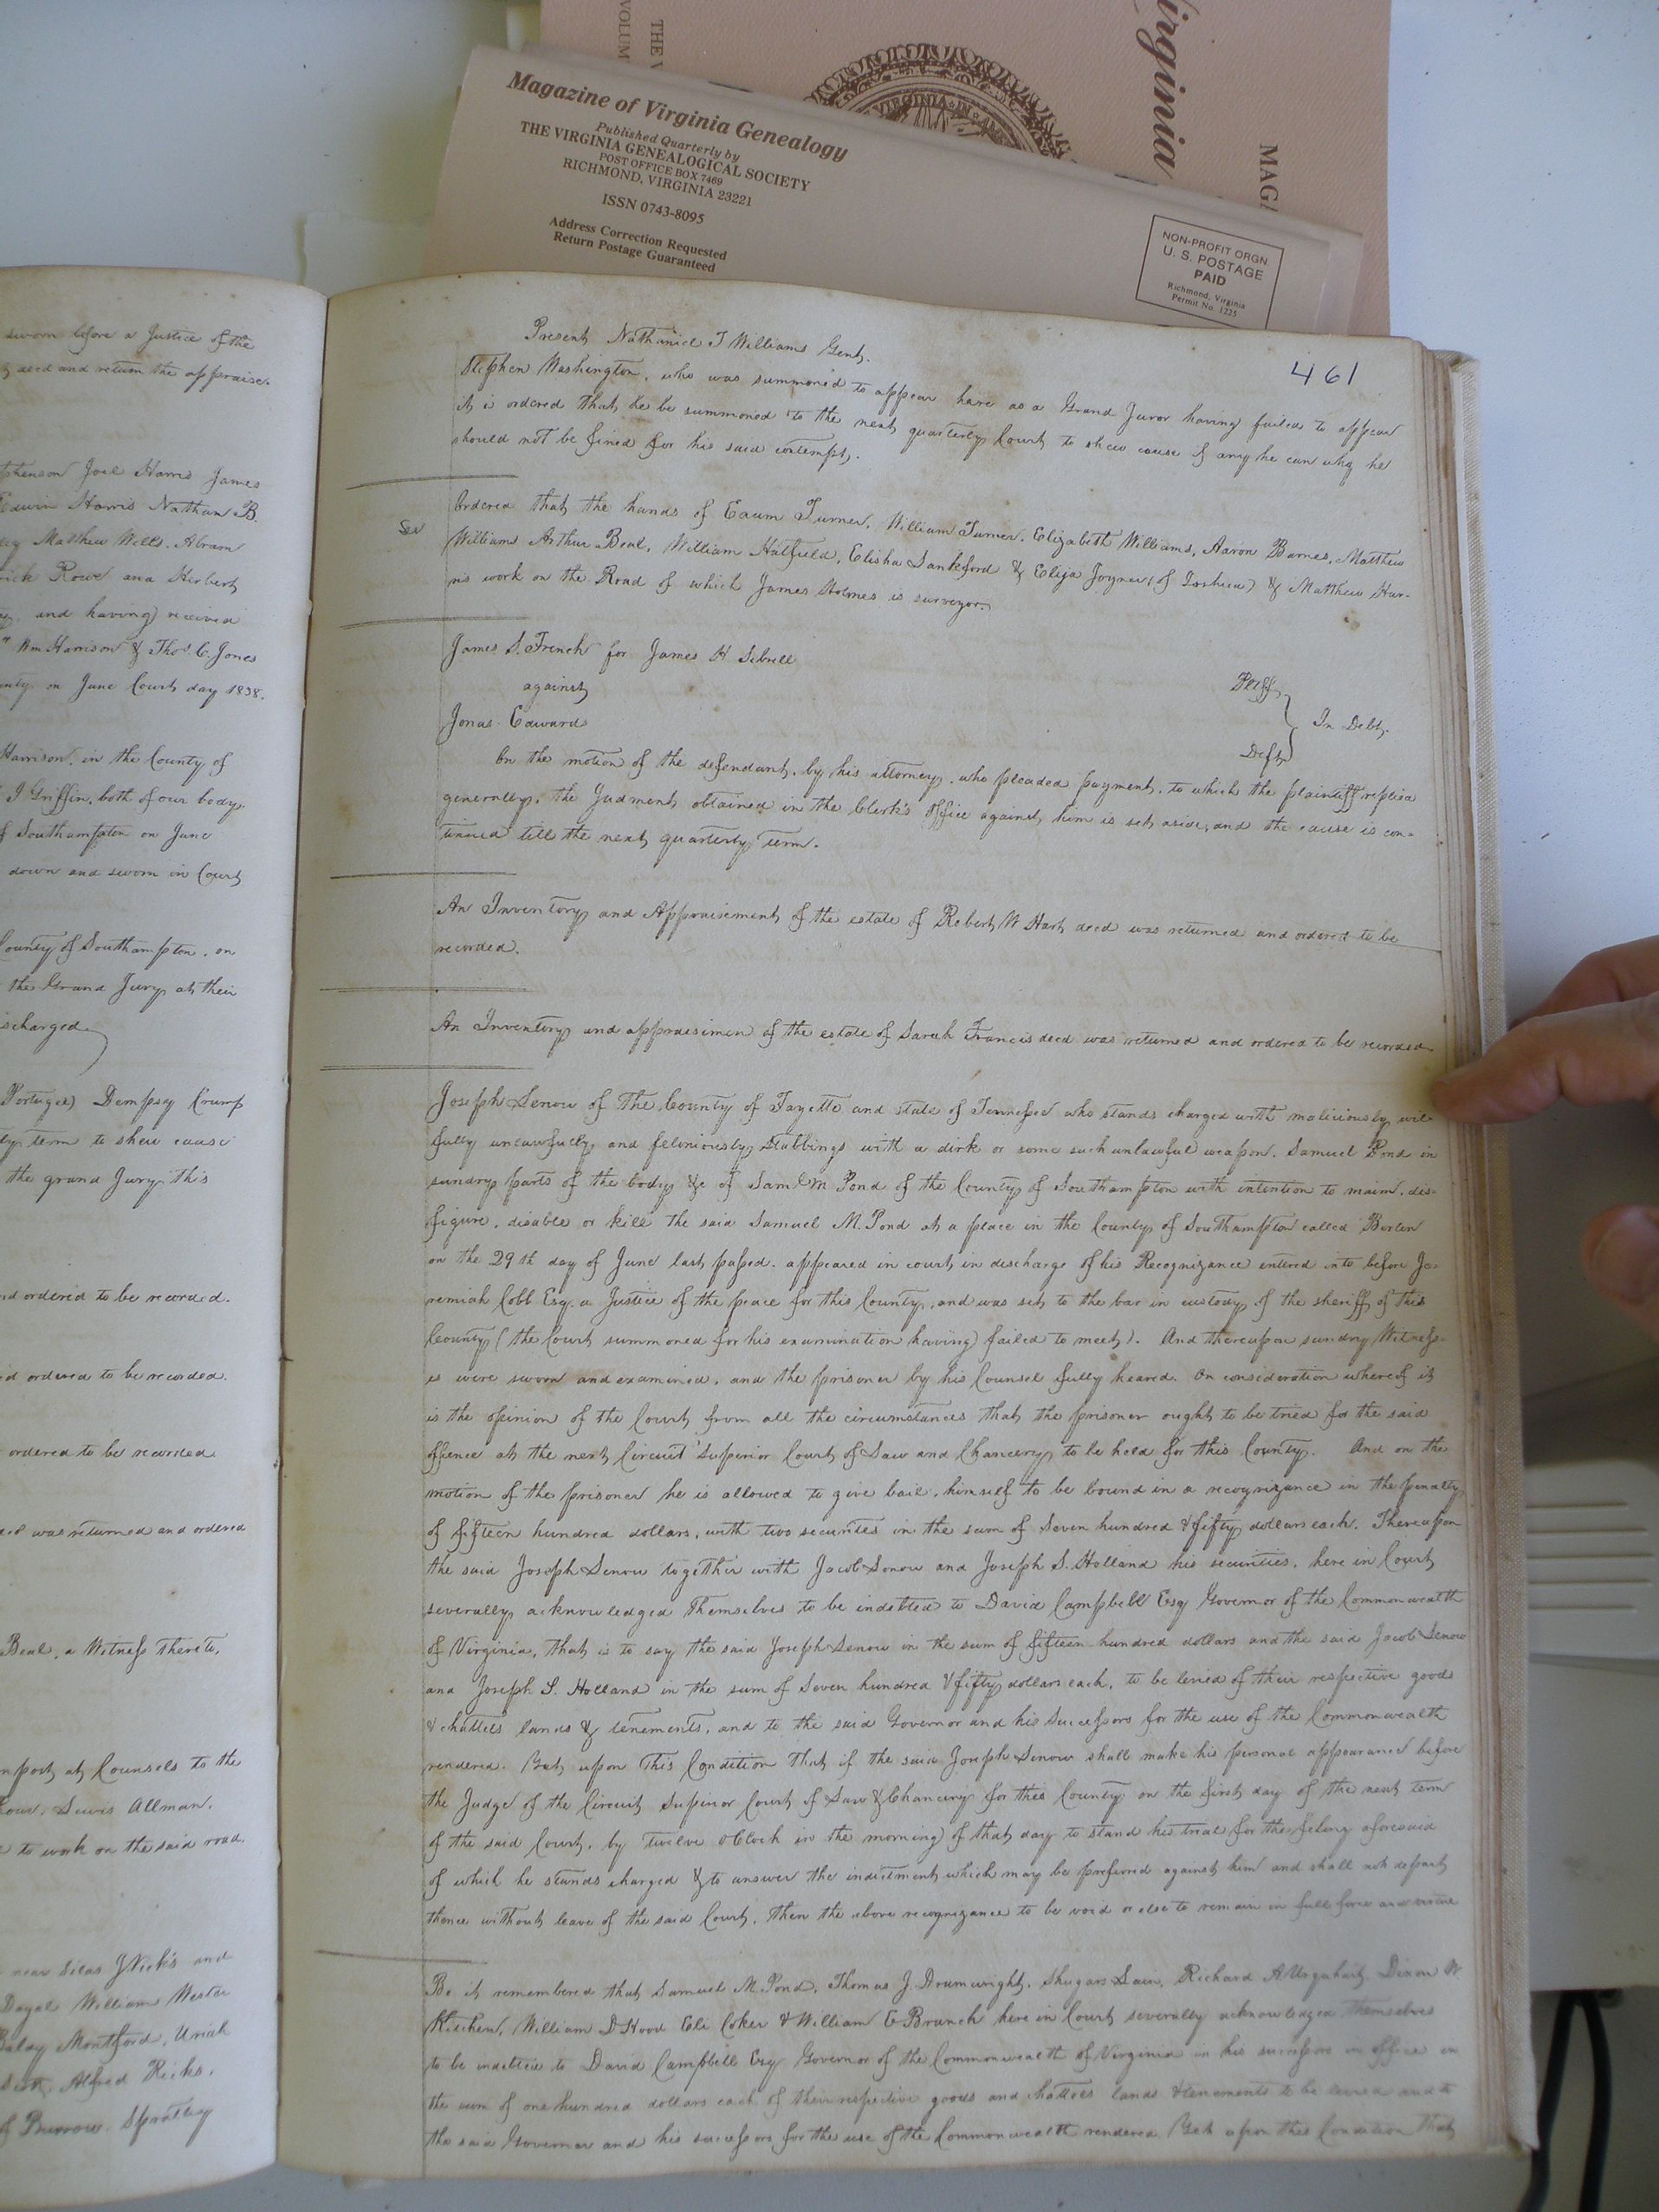 Virginia
MAG
THE V
VOLUM
VIRGINIA IN
Magazine of Virginia Genealogy
Published Quarterly by
THE VIRGINIA GENEALOGICAL SOCIETY
POST OFFICE BOX 7469
RICHMOND, VIRGINIA 23221
ISSN 0743-8095
Address Correction Requested
Return Postage Guaranteed
NON-PROFIT ORGN.
U. S. POSTAGE
PAID
Richmond, Virginia
Permit No. 1225
sworn before a Justice of the
decd and return the appraise-
Joel Harris James
Edwin Harris Nathan B.
Matthew Wills. Abram
Rowe and Herbert
and having received
Wm Harrison & Thos. C. Jones
on June Court day 1838.
Harrison. in the County of
I Griffin, both of our body
Southampton on June
down and sworn in Court
County of Southampton, on
the Grand Jury at their
discharged
Portuges) Dempsey Crump
term to shew cause
the grand Jury this
ordered to be recorded.
ordered to be recorded.
ordered to be recorded
was returned and ordered
Beal, a Witness thereto,
at Counsels to the
Lewis Allman.
to work on the said road.
near Silas J Nick's and
William Wester
Montford, Uriah
Alfred Ricks,
of Burrow. Spratley
461
Present Nathaniel T Williams Gent.
Stephen Washington, who was summoned to appear here as a Grand Juror having failed to appear
it is ordered that he be summoned to the next quarterly Court to shew cause if any he can why he
should not be fined for his said contempt.
Ordered that the hands of Exum Turner, William Turner, Elizabeth Williams, Aaron Barnes, Matthew
Williams Arthur Beal, William Hatfield, Elisha Lankford & Elija Joyner (of Joshua) & Matthew Har-
ris work on the Road of which James Holmes is surveyor.
James S. French for James H Sebrell
Pltff
against
In Debt.
Jonas Edwards
Deft
On the motion of the defendant, by his attorney, who pleaded payment, to which the plaintiff replied
generally, the Judment obtained in the Clerk's Office against him is set aside, and the cause is con-
tinued till the next quarterly term.
An Inventory and Appraisement of the estate of Robert W Hart decd was returned and ordered to be
recorded.
An Inventory and appraisemen of the estate of Sarah Francis decd was returned and ordered to be recorded
Joseph Lenow of the County of Fayette and state of Tennessee who stands charged with maliciously wil-
fully unlawfully and feloniously Stabbings with a dirk or some such unlawful weapon, Samuel Pond in
sundry parts of the body &c of Saml M Pond of the County of Southampton with intention to maim, dis-
figure, disable or kill the said Samuel M. Pond at a place in the County of Southampton called Berlen
on the 29th day of June last passed. appeared in court in discharge of his Recognizance entered into before Je-
remiah Cobb Esq. a Justice of the peace for this County, and was set to the bar in custody of the sheriff of this
County (the Court summoned for his examination having failed to meet). And thereupon sundry Witness-
es were sworn and examined, and the prisoner by his Counsel fully heared. On consideration whereof it
is the opinion of the Court from all the circumstances that the prisoner ought to be tried for the said
offence at the next Circuit Superior Court of Law and Chancery to be held for this County. And on the
motion of the prisoner he is allowed to give bail, himself to be bound in a recognizance in the penalty
of fifteen hundred dollars, with two securites in the sum of Seven hundred & fifty dollars each. Thereupon
the said Joseph Lenow together with Jacob Lenow and Joseph S. Holland his securities, here in Court
severally acknowledged themselves to be indebted to David Campbell Esq Governor of the Commonwealth
of Virginia, that is to say the said Joseph Lenow in the sum of fifteen hundred dollars and the said Jacob Lenow
and Joseph S. Holland in the sum of Seven hundred & fifty dollars each, to be levied of their respective goods
& chattels lands & tenements, and to the said Governor and his Successors for the use of the Commonwealth
rendered. Yet upon this Condition that if the said Joseph Lenow shall make his personal appearance before
the Judge of the Circuit Superior Court of Law & Chancery for this County on the first day of the next term
of the said Court, by twelve oClock in the morning of that day to stand his trial for the felony aforesaid
of which he stands charged & to answer the indictment which may be preferred against him and shall not depart
thence without leave of the said Court, then the above recognizance to be void or else to remain in full force and virtue
Be it remembered that Samuel M. Pond, Thomas J. Drumwright, Shugars Lain, Richard A Urquhart, Dixon W
Kitchen, William D Hood Eli Coker & William E Branch here in Court severally acknowledged themselves
to be indebted to David Campbell Esq Governor of the Commonwealth of Virginia in his successors in office in
the sum of one hundred dollars each of their respective goods and chattels lands & tenements to be levied and to
the said Governor and his successors for the use of the Commonwealth rendered. Yet upon this Condition that